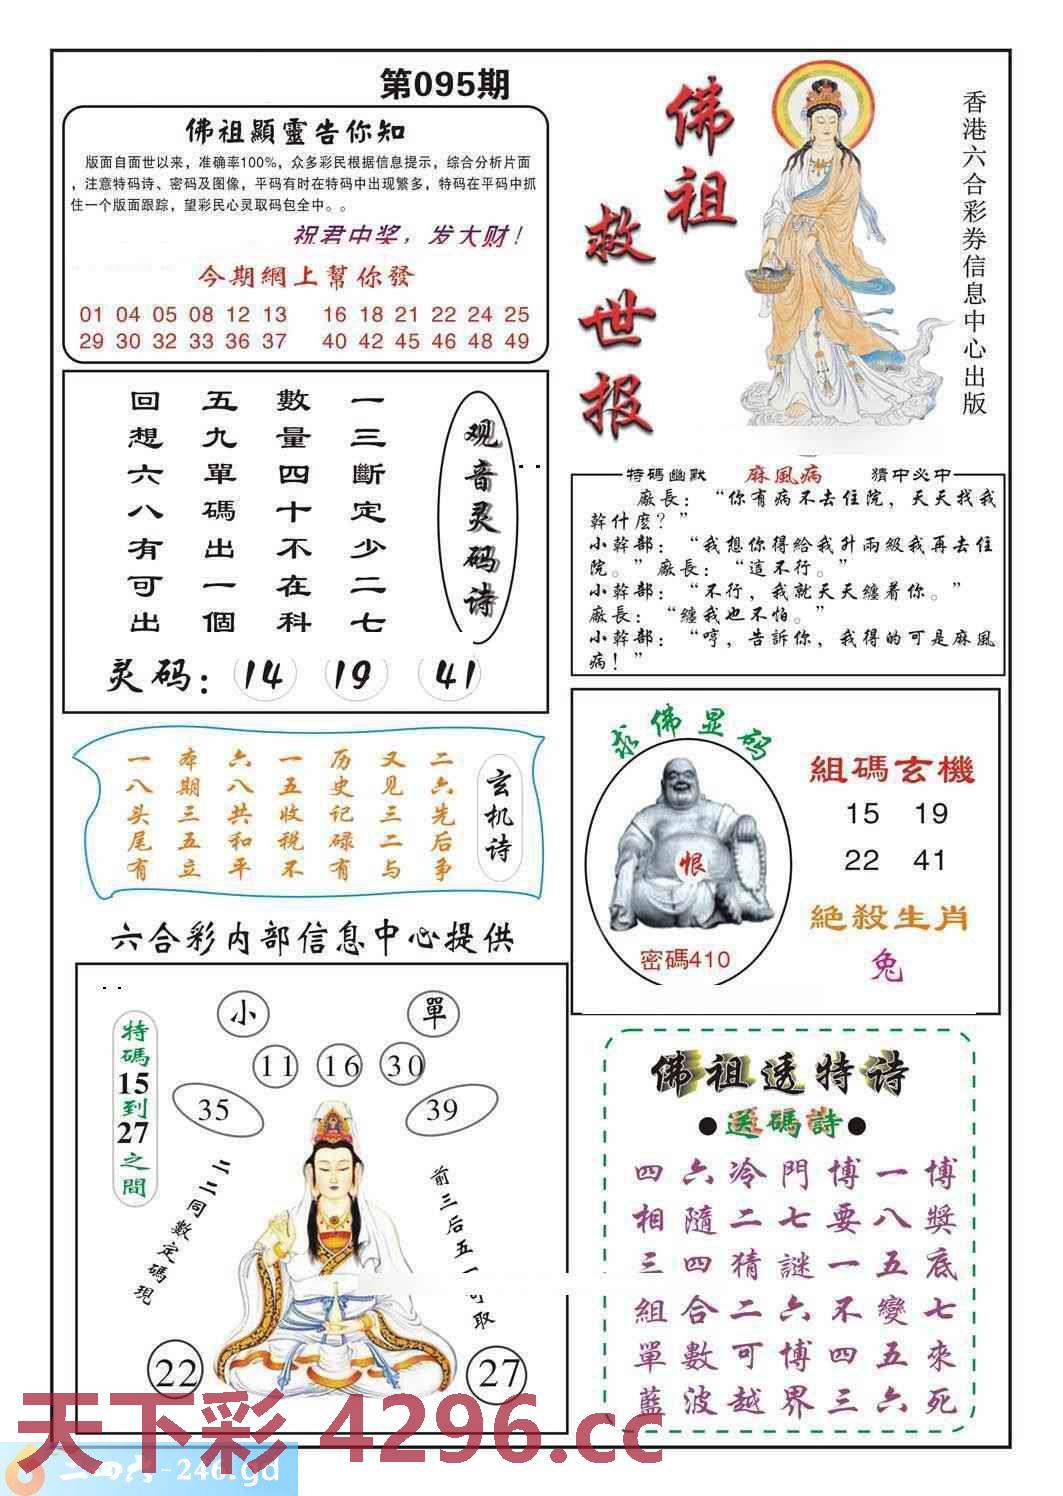 第095期
佛祖顯靈告你知
版面自面世以来，准确率100%，众多彩民根据信息提示，综合分析片面
，注意特码诗、密码及图像，平码有时在特码中出现繁多，特码在平码中抓
住一个版面跟踪，望彩民心灵取码包全中。。
祝君中奖，发大财！
今期網上幫你發
01 04 05 08 12 13 16 18 21 22 24 25
29 30 32 33 36 37 40 42 45 46 48 49
佛祖
救世报
香港六合彩券信息中心出版
观音灵码诗
一三斷定少二七
數量四十不在科
五九單碼出一個
回想六八有可出
灵码：14 19 41
特碼幽默 麻風病 猜中必中
廠長：“你有病不去住院，天天找我
幹什麼？”
小幹部：“我想你得給我升兩級我再去住
院。”廠長：“這不行。”
小幹部：“不行，我就天天纏着你。”
廠長：“纏我也不怕。”
小幹部：“哼，告訴你，我得的可是麻風
病！”
玄机诗
二六先后争
又见三二与
历史记碌有
一五收税不
六八共和平
本期三五立
一八头尾有
求佛显码
恨
密碼410
組碼玄機
15 19
22 41
絶殺生肖
兔
六合彩内部信息中心提供
小 單
11 16 30
35 39
特碼15到27之間
二二同數定碼現
前三后五一
取
22 27
佛祖透特诗
●送碼詩●
博獎底七來死
一八五變五六
博要一不四三
門七謎六博界
冷二猜二可越
六隨四合數波
四相三組單藍
天下彩 4296.cc
二四六-246.gd